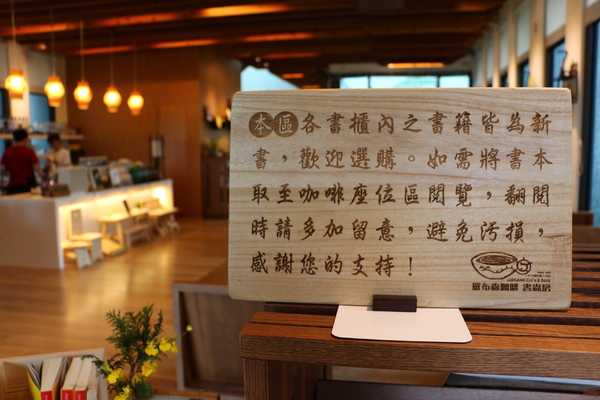 本區各書櫃內之書籍皆為新
書，歡迎選購。如需將書本
取至咖啡座位區閱覽，翻閱
時請多加留意，避免汚損，
感謝您的支持！
羅布森咖啡 書蟲房